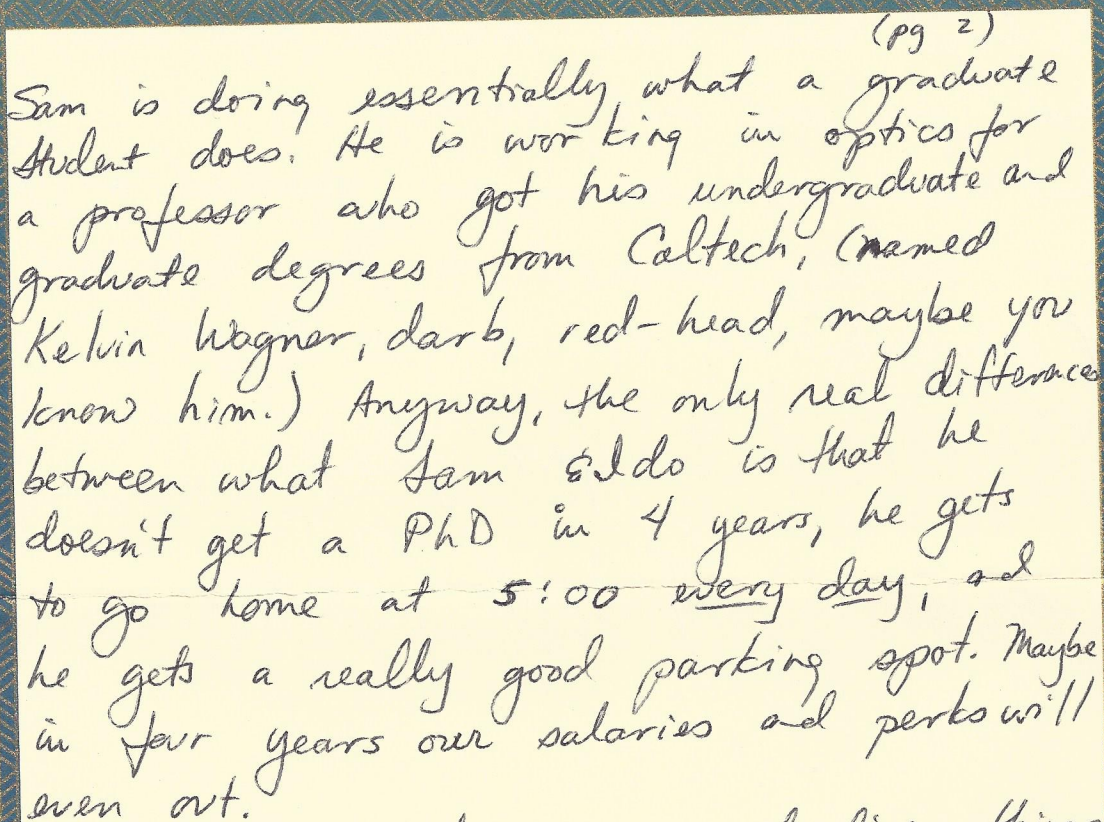 (pg 2)
Sam is doing essentially what a graduate
student does. He is working in optics for
a professor who got his undergraduate and
graduate degrees from Caltech, (named
Kelvin Wagner, darb, red-head, maybe you
know him.) Anyway, the only real differences
between what Sam & I do is that he
doesn't get a PhD in 4 years, he gets
to go home at 5:00 every day, and
he gets a really good parking spot. Maybe
in four years our salaries and perks will
even out.